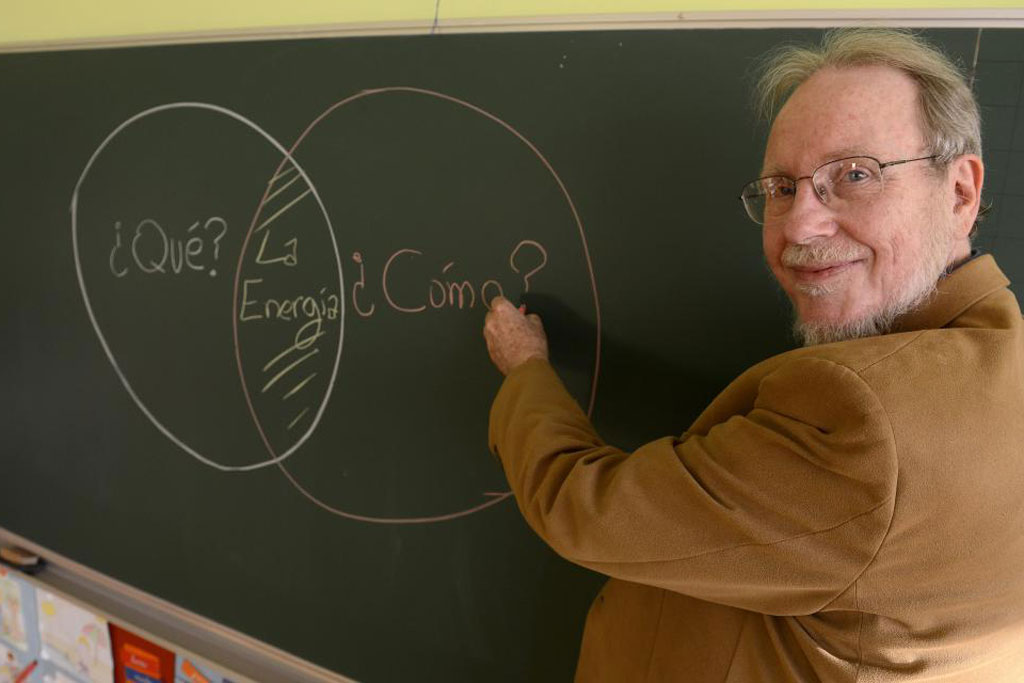 ¿Qué?
La
Energía
¿Cómo?